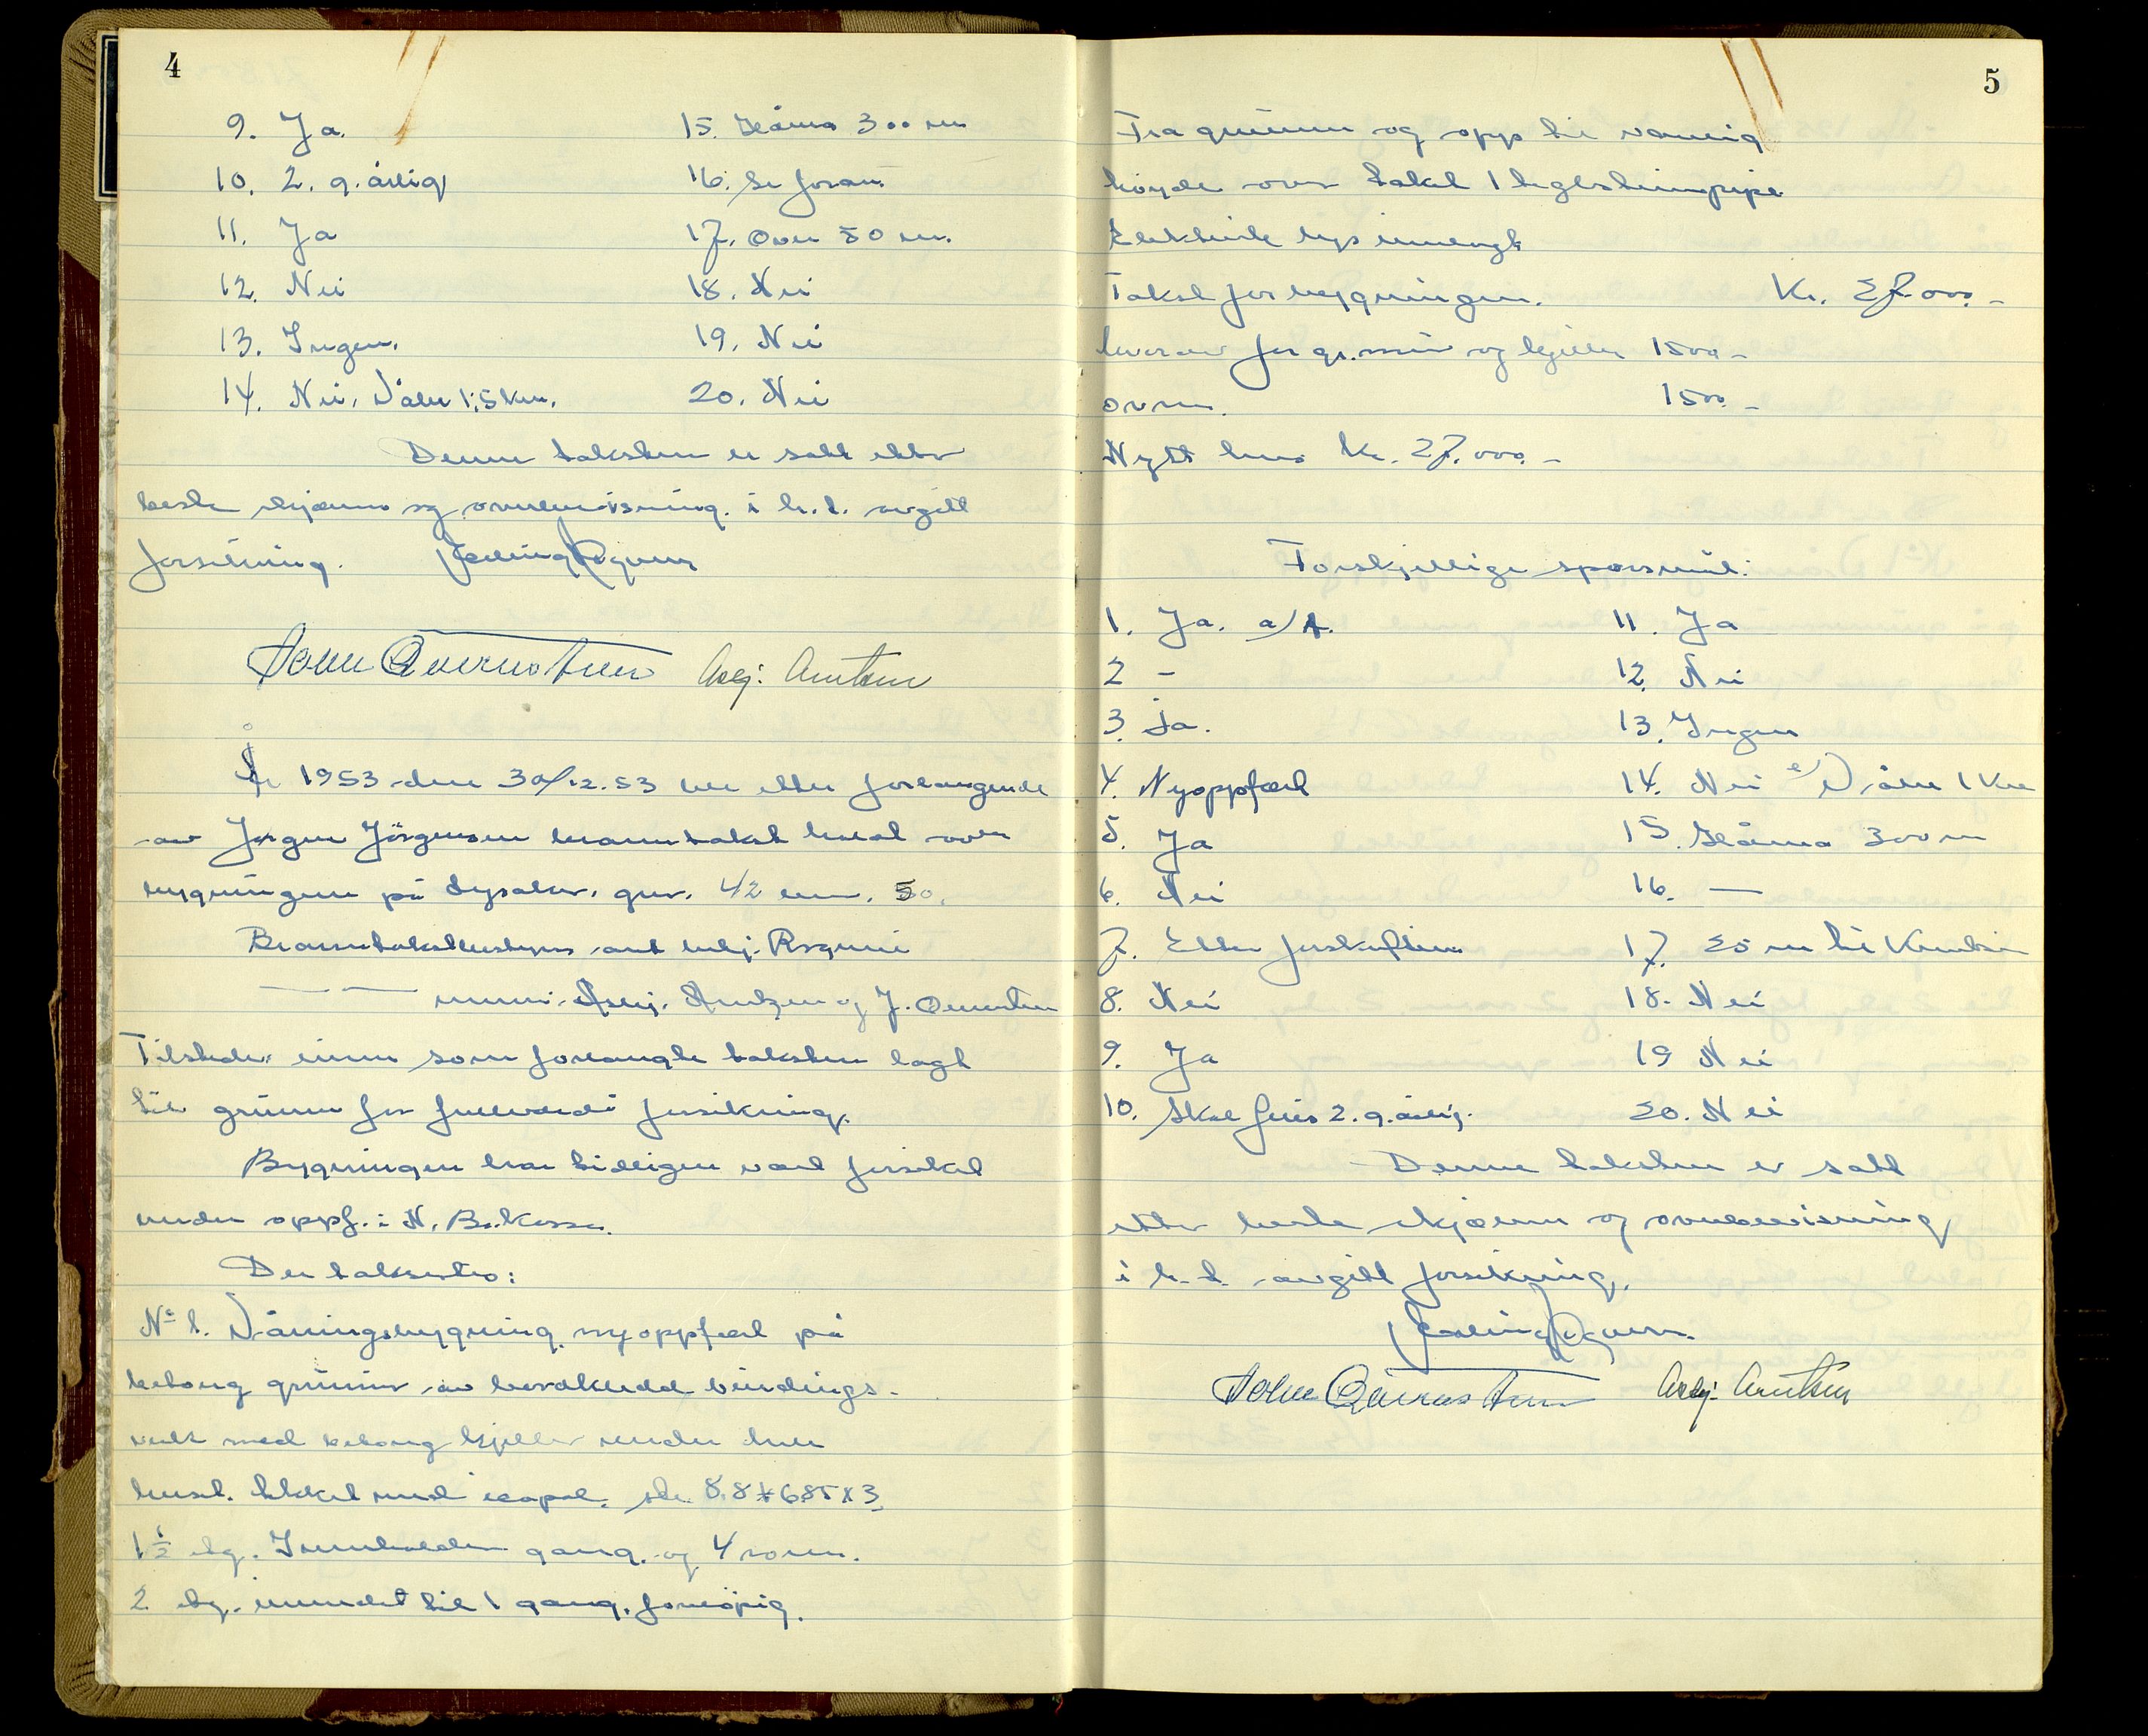 4
9. Ja. 15. 300 m
10. 2. g. årlig 16. Se foran.
11. Ja 17. Over 50 m.
12. Nei 18. Nei
13. Ingen. 19. Nei
14. Nei. 1,5 km. 20. Nei
Denne taksten er satt etter
beste skjønn og overbevisning i h.t. avgitt
forsikring.
Asbj. Arntsen
År 1953 den 30/12.53 ble etter forlangende
av Jørgen Jörgensen branntakst holdt over
bygningen på gnr. 42 bnr. 50.
Branntakstbestyrer
Asbj. Arntzen og J.
Tilstede: som forlangte taksten lagt
til grunn for fullverdi forsikring.
Bygningen har tidligere vært forsikret
under oppf. i N. Br.kasse.
Der taksertes:
No 1. Våningsbygning nyoppført på
betong grunnmur av bordkledd bindings-
verk med betong kjeller under hele
huset. Tekket med icopal. Str. 8.8 x 6.85 x 3
1 1/2 etg. Inneholder gang og 4 rom.
2 etg. innredet til 1 gang, foreløpig.
5
Fra grunn og opp til vanlig
høyde over taket 1 teglsteinspipe
Elektrisk lys innlagt
Takst for bygningen. Kr. 27.000.-
herav for gr.mur og kjeller 1500.-
ovner. 1500.-
Nytt hus kr. 27.000.-
Forskjellige spørsmål:
1. Ja. a/A. 11. Ja
2 - 12. Nei
3. Ja. 13. Ingen
4. Nyoppført 14. Nei 1 km
5. Ja 15. 300 m
6. Nei 16. —
7. Etter forskriftene 17. 20 m til
8. Nei 18. Nei
9. Ja 19 Nei
10. Skal feies 2. g. årlig. 20. Nei
Denne taksten er satt
etter beste skjønn og overbevisning
i h.t. avgitt forsikring.
Asbj. Arntsen